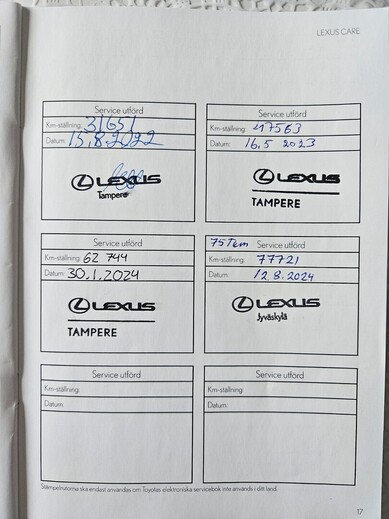 LEXUS CARE
Service utförd
Km-ställning: 31651
Datum: 15.8.2022
LEXUS
Tampere
Service utförd
Km-ställning: 47563
Datum: 16.5 2023
LEXUS
TAMPERE
Service utförd
Km-ställning: 62 744
Datum: 30.1.2024
LEXUS
TAMPERE
75Tkm Service utförd
Km-ställning: 77721
Datum: 12 8.2024
LEXUS
Jyväskylä
Service utförd
Km-ställning:
Datum:
Service utförd
Km-ställning:
Datum:
Stämpelrutorna ska endast användas om Toyotas elektroniska servicebok inte används i ditt land.
17